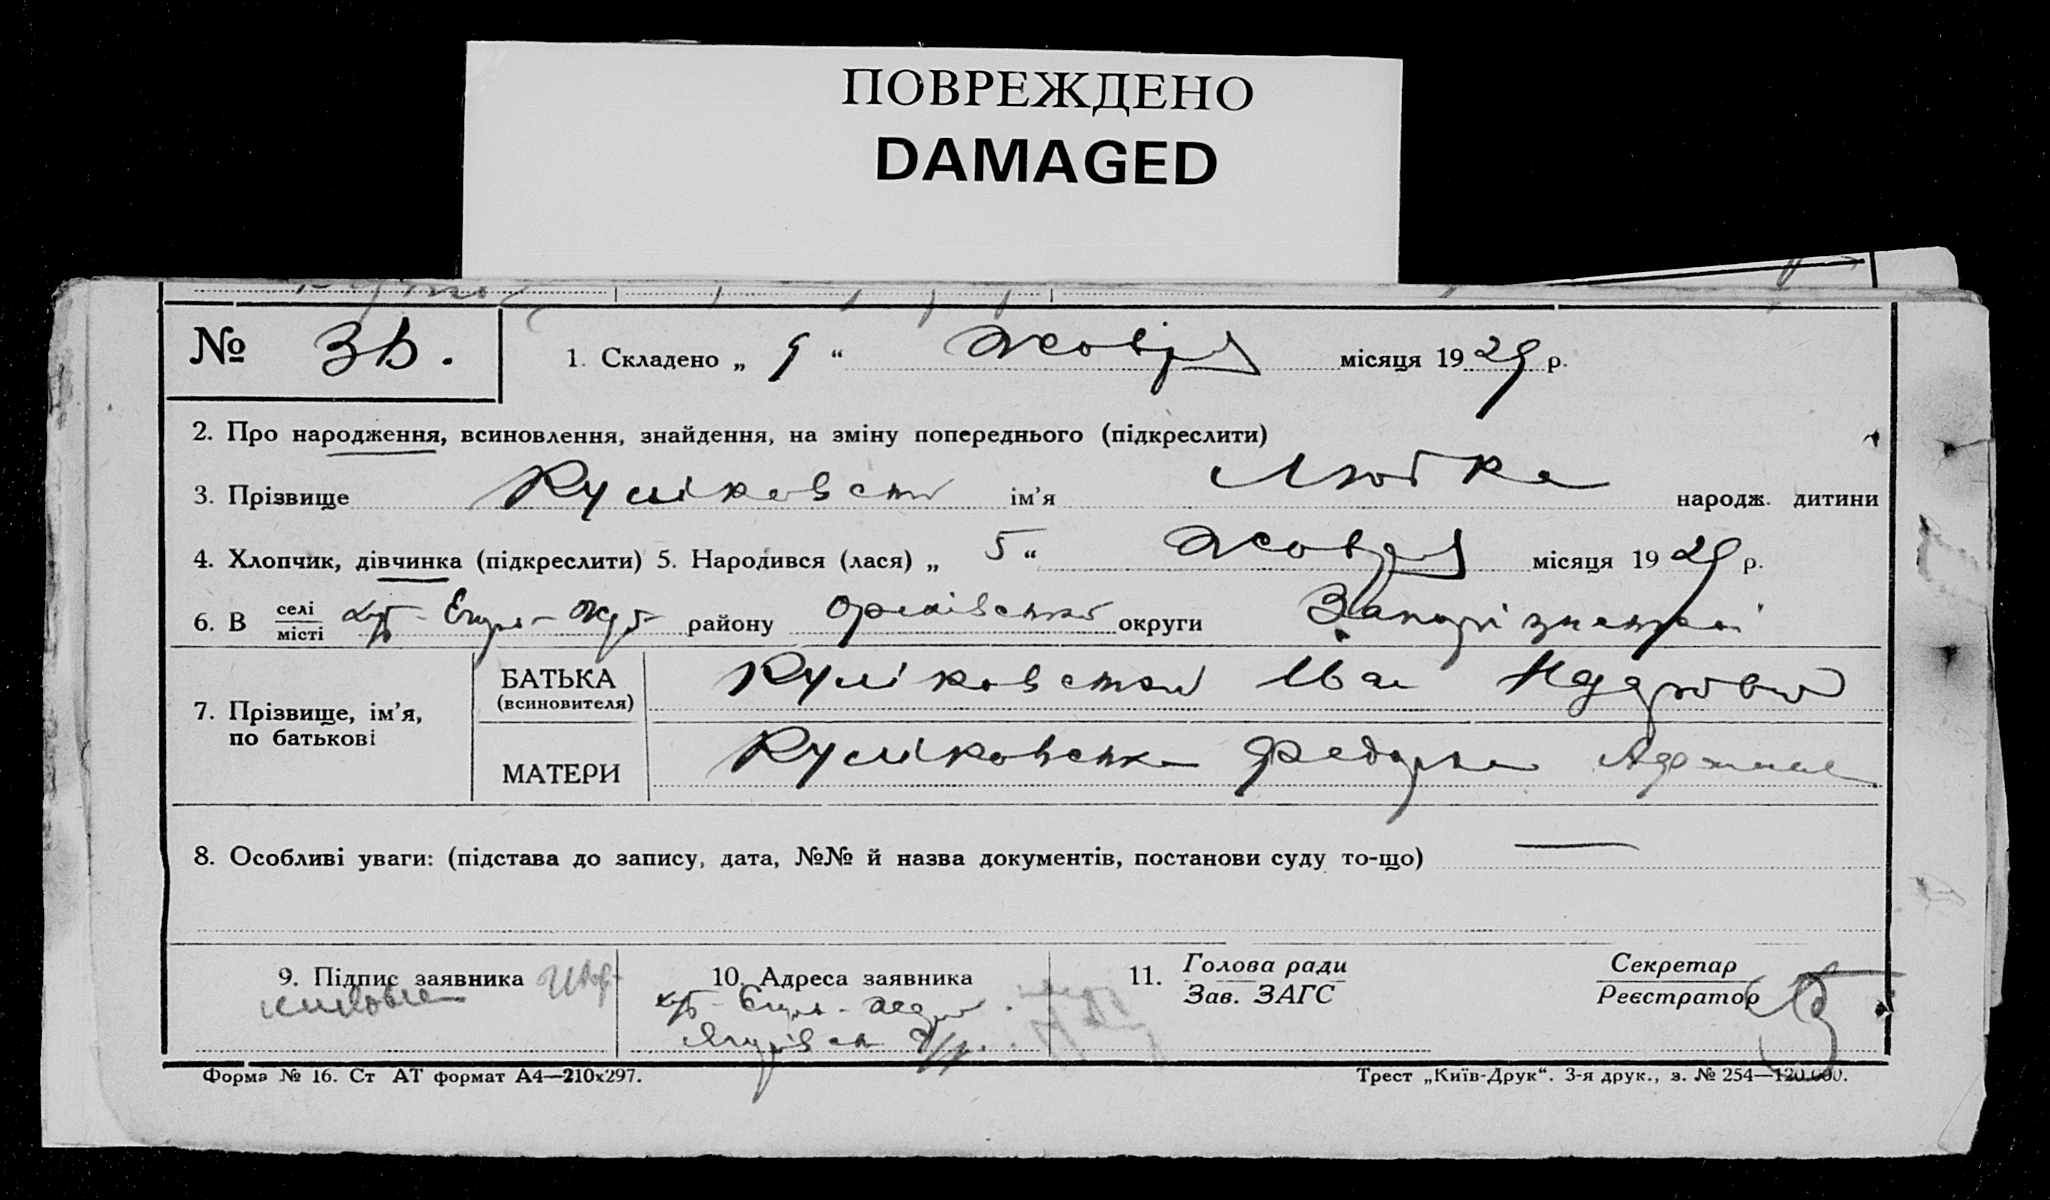 ПОВРЕЖДЕНО
DAMAGED
№ 36. 1. Складено „ 9 “ Жовтня місяця 1929 р.
2. Про народження, всиновлення, знайдення, на зміну попереднього (підкреслити)
3. Прізвище ім’я Любка народж. дитини
4. Хлопчик, дівчинка (підкреслити) 5. Народився (лася) „ 5 “ Жовтня місяця 1929 р.
6. В селі / місті району округи Запорізької
7. Прізвище, ім’я, по батькові
БАТЬКА (всиновителя) Куліковський Іван
МАТЕРИ Куліковська
8. Особливі уваги: (підстава до запису, дата, №№ й назва документів, постанови суду то-що) —
9. Підпис заявника
10. Адреса заявника
11. Голова ради / Зав. ЗАГС
Секретар / Реєстратор
Форма № 16. Ст АТ формат А4—210х297.
Трест „Київ-Друк“. 3-я друк., з. № 254—120.000.